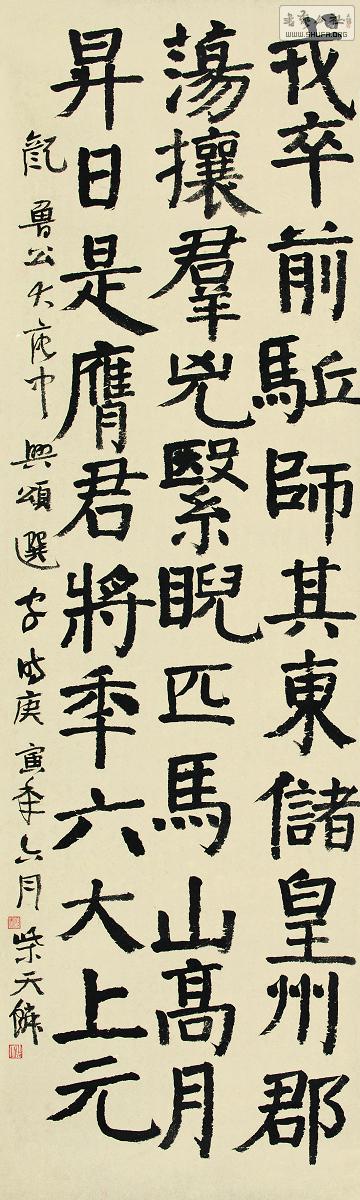 戎卒前駈師其東儲皇州郡
蕩攘羣兇繄睨匹馬山高月
昇日是膺君將年六大上元
魯公大唐中興頌選字時庚寅年六月柴天鱗
WWW.SHUFA.ORG